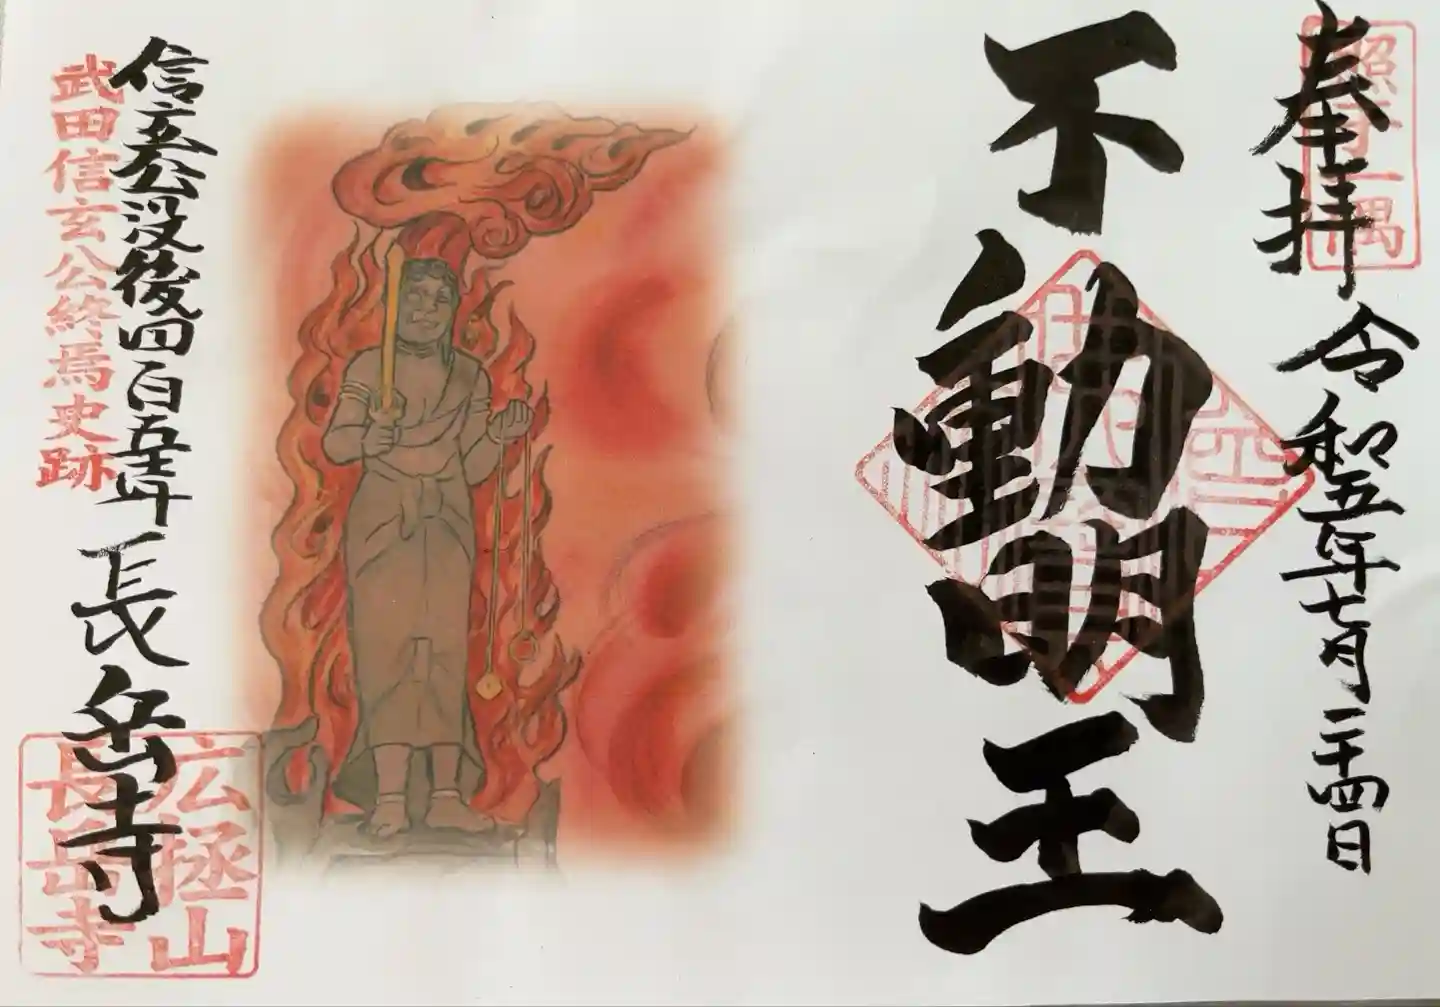 奉拝 令和五年七月二十四日
照于一隅
不動明王
信玄公没後四百五十年 長岳寺
武田信玄公終焉史跡
広拯山
長岳寺